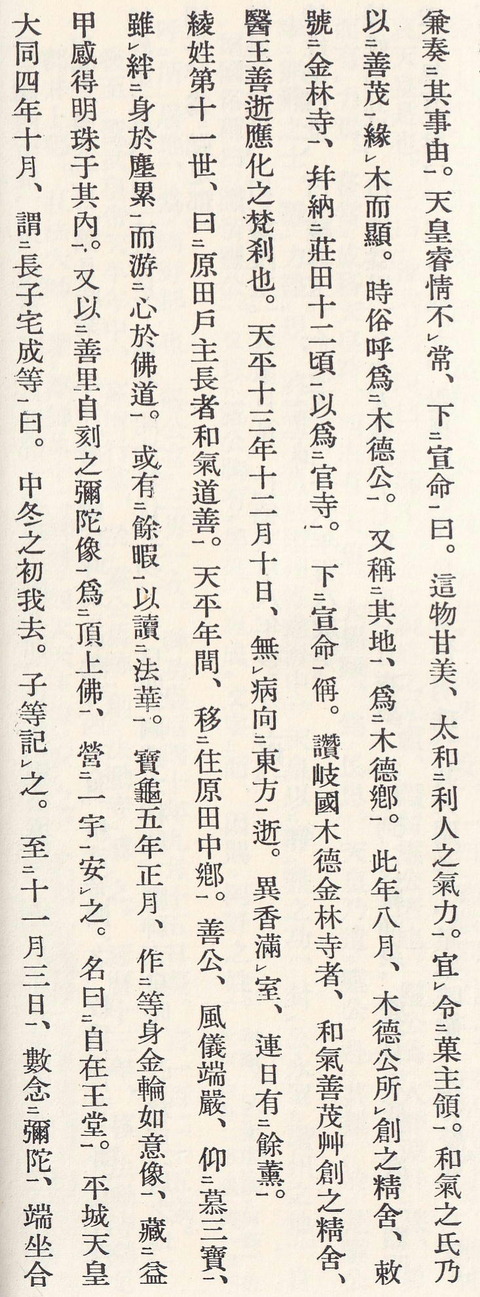 兼奏㆓其事由㆒。天皇睿情不㆑常、下㆓宣命㆒曰。這物甘美、太和㆓利人之氣力㆒。宜㆑令㆓菓主領㆒。和氣之氏乃
以㆓善茂㆒緣㆑木而顯。時俗呼爲㆓木德公㆒。又稱㆓其地㆒、爲㆓木德鄕㆒。此年八月、木德公所㆑創之精舍、敕
號㆓金林寺㆒、幷納㆓莊田十二頃㆒以爲㆓官寺㆒。下㆓宣命㆒偁。讚岐國木德金林寺者、和氣善茂艸創之精舍、
醫王善逝應化之梵刹也。天平十三年十二月十日、無㆑病向㆓東方㆒逝。異香滿㆑室、連日有㆓餘薰㆒。
綾姓第十一世、曰㆓原田戶主長者和氣道善㆒。天平年間、移㆓住原田中鄕㆒。善公、風儀端嚴、仰㆓慕三寶㆒、
雖㆑絆㆓身於塵累㆒而游㆓心於佛道㆒。或有㆓餘暇㆒以讀㆓法華㆒。寶龜五年正月、作㆓等身金輪如意像㆒、藏㆓益
甲感得明珠于其內㆒。又以㆓善里自刻之彌陀像㆒爲㆓頂上佛㆒、營㆓一宇㆒安㆑之。名曰㆓自在王堂㆒。平城天皇
大同四年十月、謂㆓長子宅成等㆒曰。中冬之初我去。子等記㆑之。至㆓十一月三日㆒、數念㆓彌陀㆒、端坐合